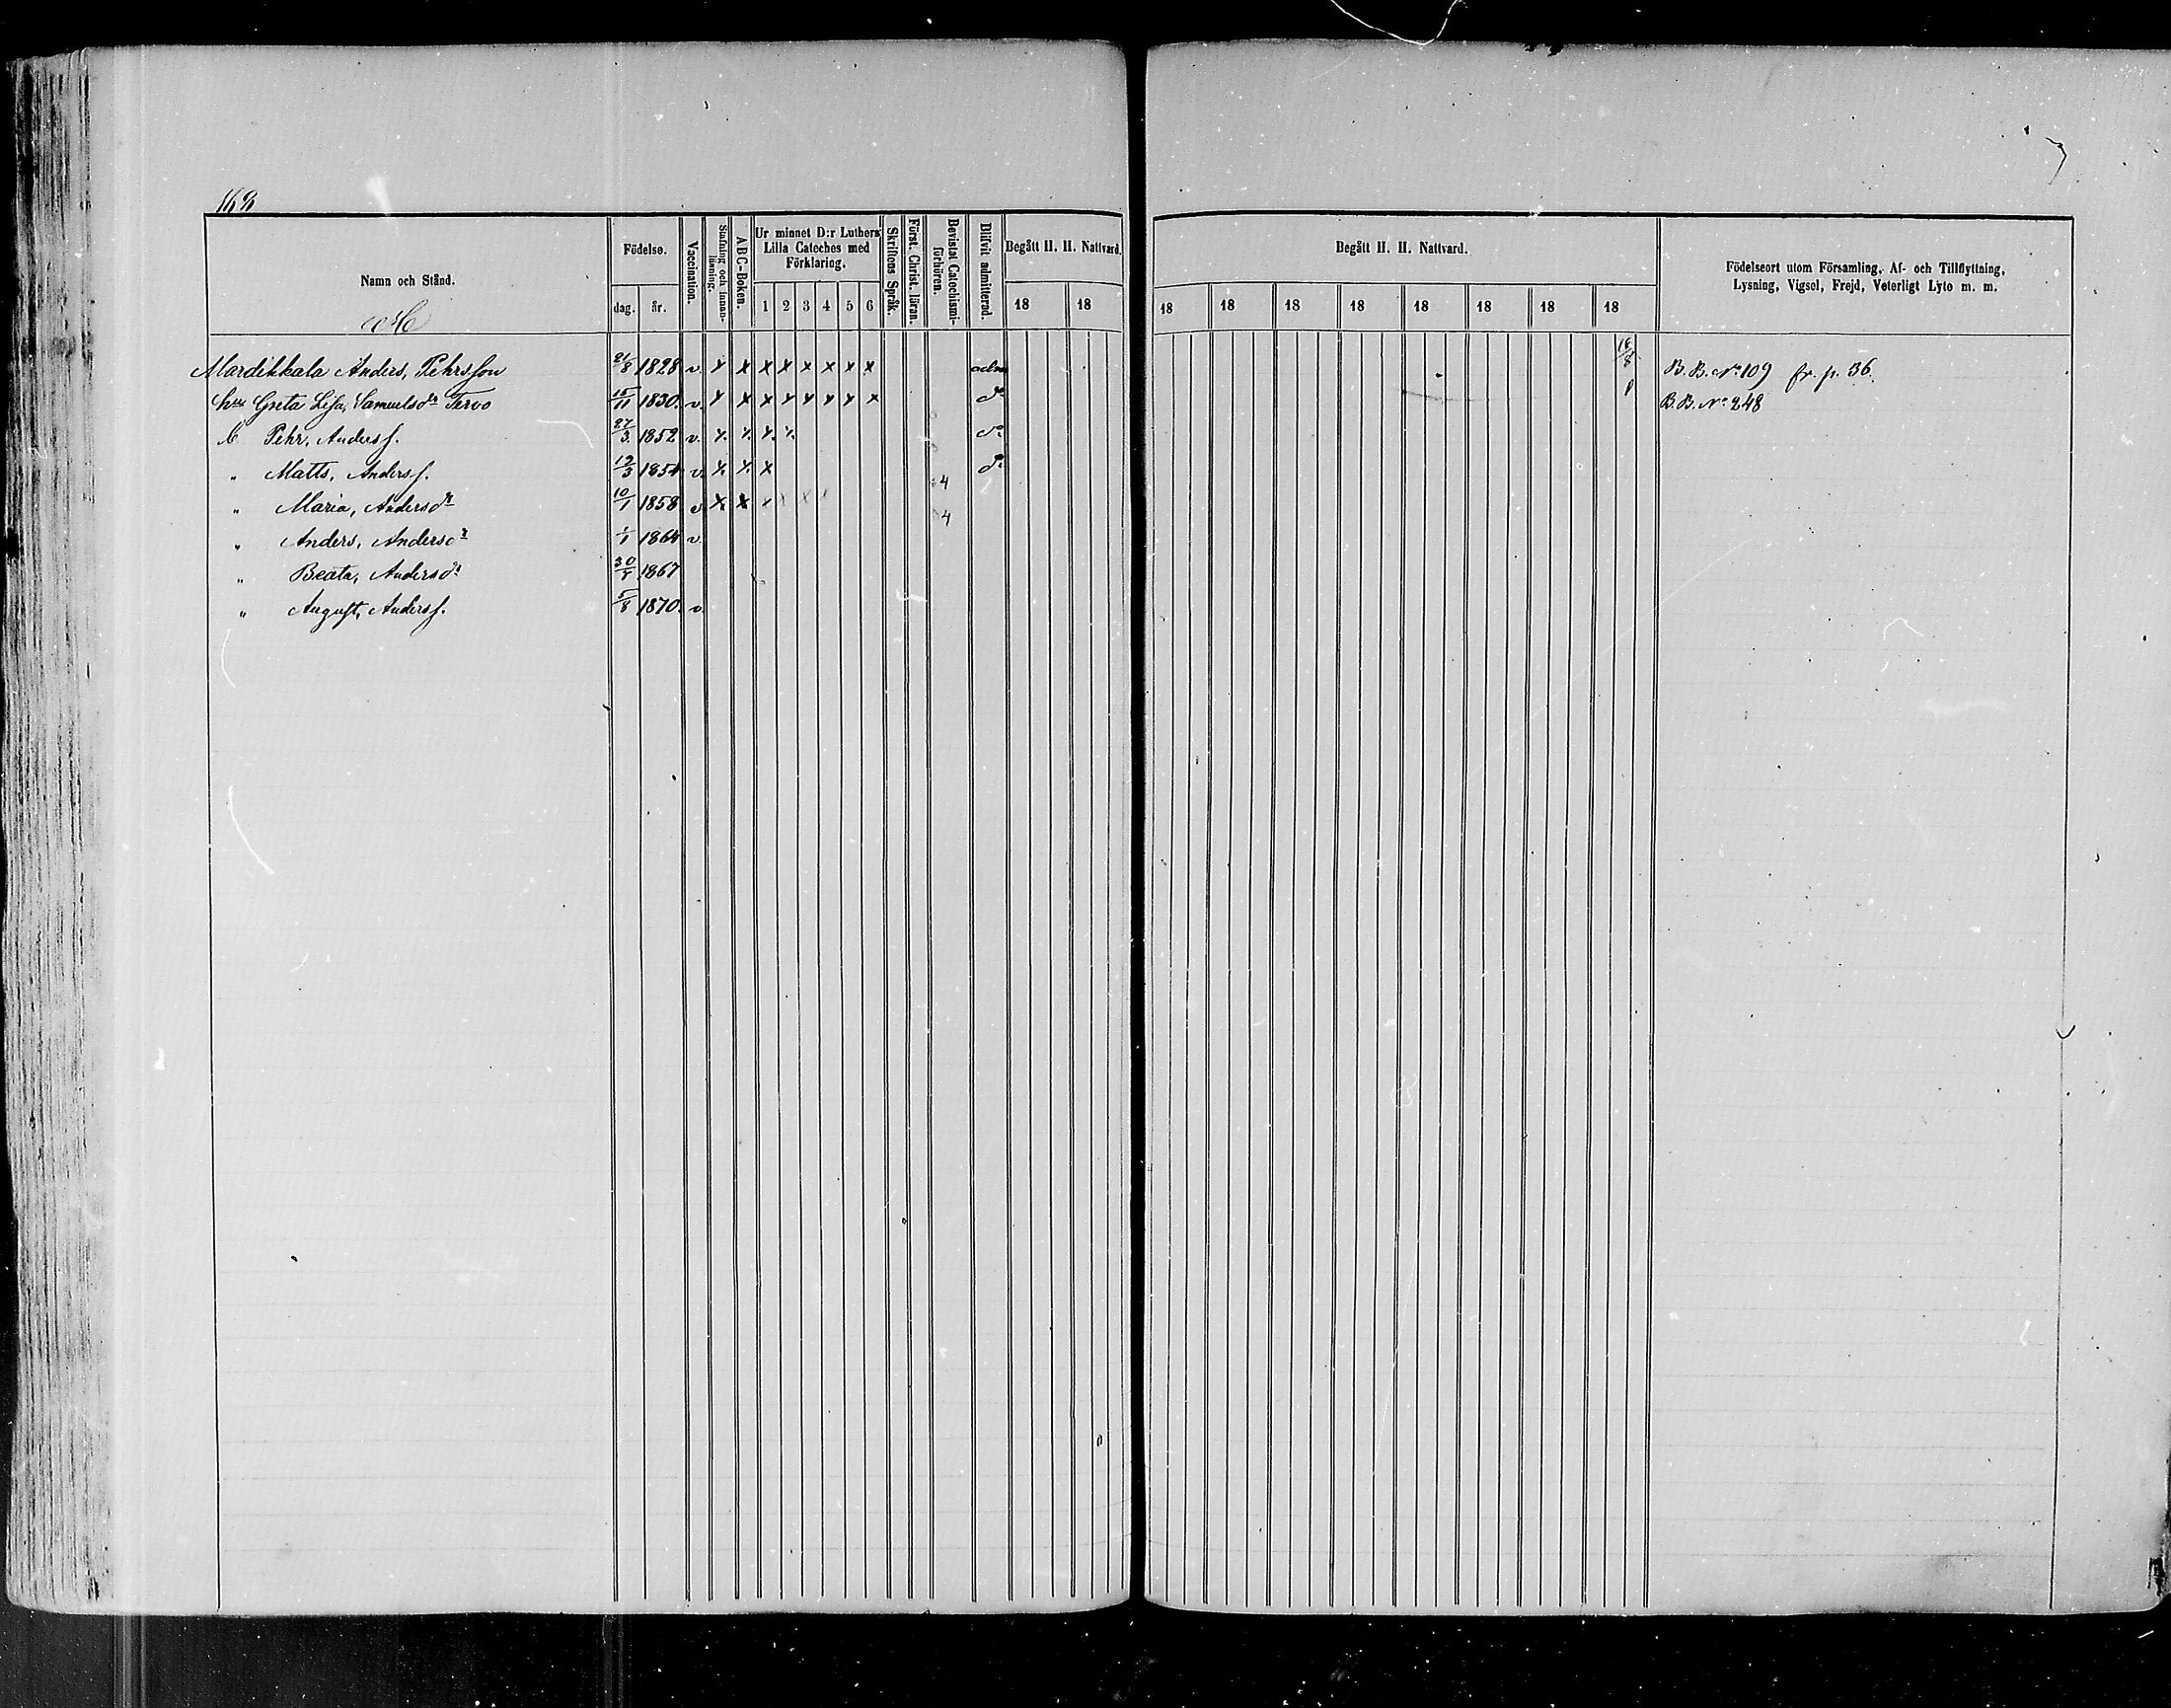 Namn och Stånd.
Födelse.
dag. år.
Vaccination.
Stafning och innanläsning.
ABC-Boken.
Ur minnet D:r Luthers Lilla Cateches med Förklaring.
1 2 3 4 5 6
Skriftens Språk.
Först. Christ. läran.
Bevistat Catechismiförhören.
Blifvit admitterad.
Begått H. H. Nattvard.
18 18
Begått H. H. Nattvard.
18 18 18 18 18 18 18 18
Födelseort utom Församling, Af- och Tillflyttning,
Lysning, Vigsel, Frejd, Veterligt Lyte m. m.
M
Mardikkala Anders, Pehrsson 21/8 1828 v. x x x x x x x x adm B. B. No 109 fr. p. 36.
hu Greta Lisa, Samuelsdr Tervo 15/11 1830. v. x x x x x x x x do B. B. No 248
b Pehr, Anders s. 27/3 1852 v. x x x x do
" Matts, Anders s. 12/3 1854 v. x x x do
" Maria, Andersdr 10/1 1858 v x x x x x 4
" Anders, Andersdr 1/1 1864 v
" Beata, Andersdr 1867
" August, Anders s. 5/8 1870. v.